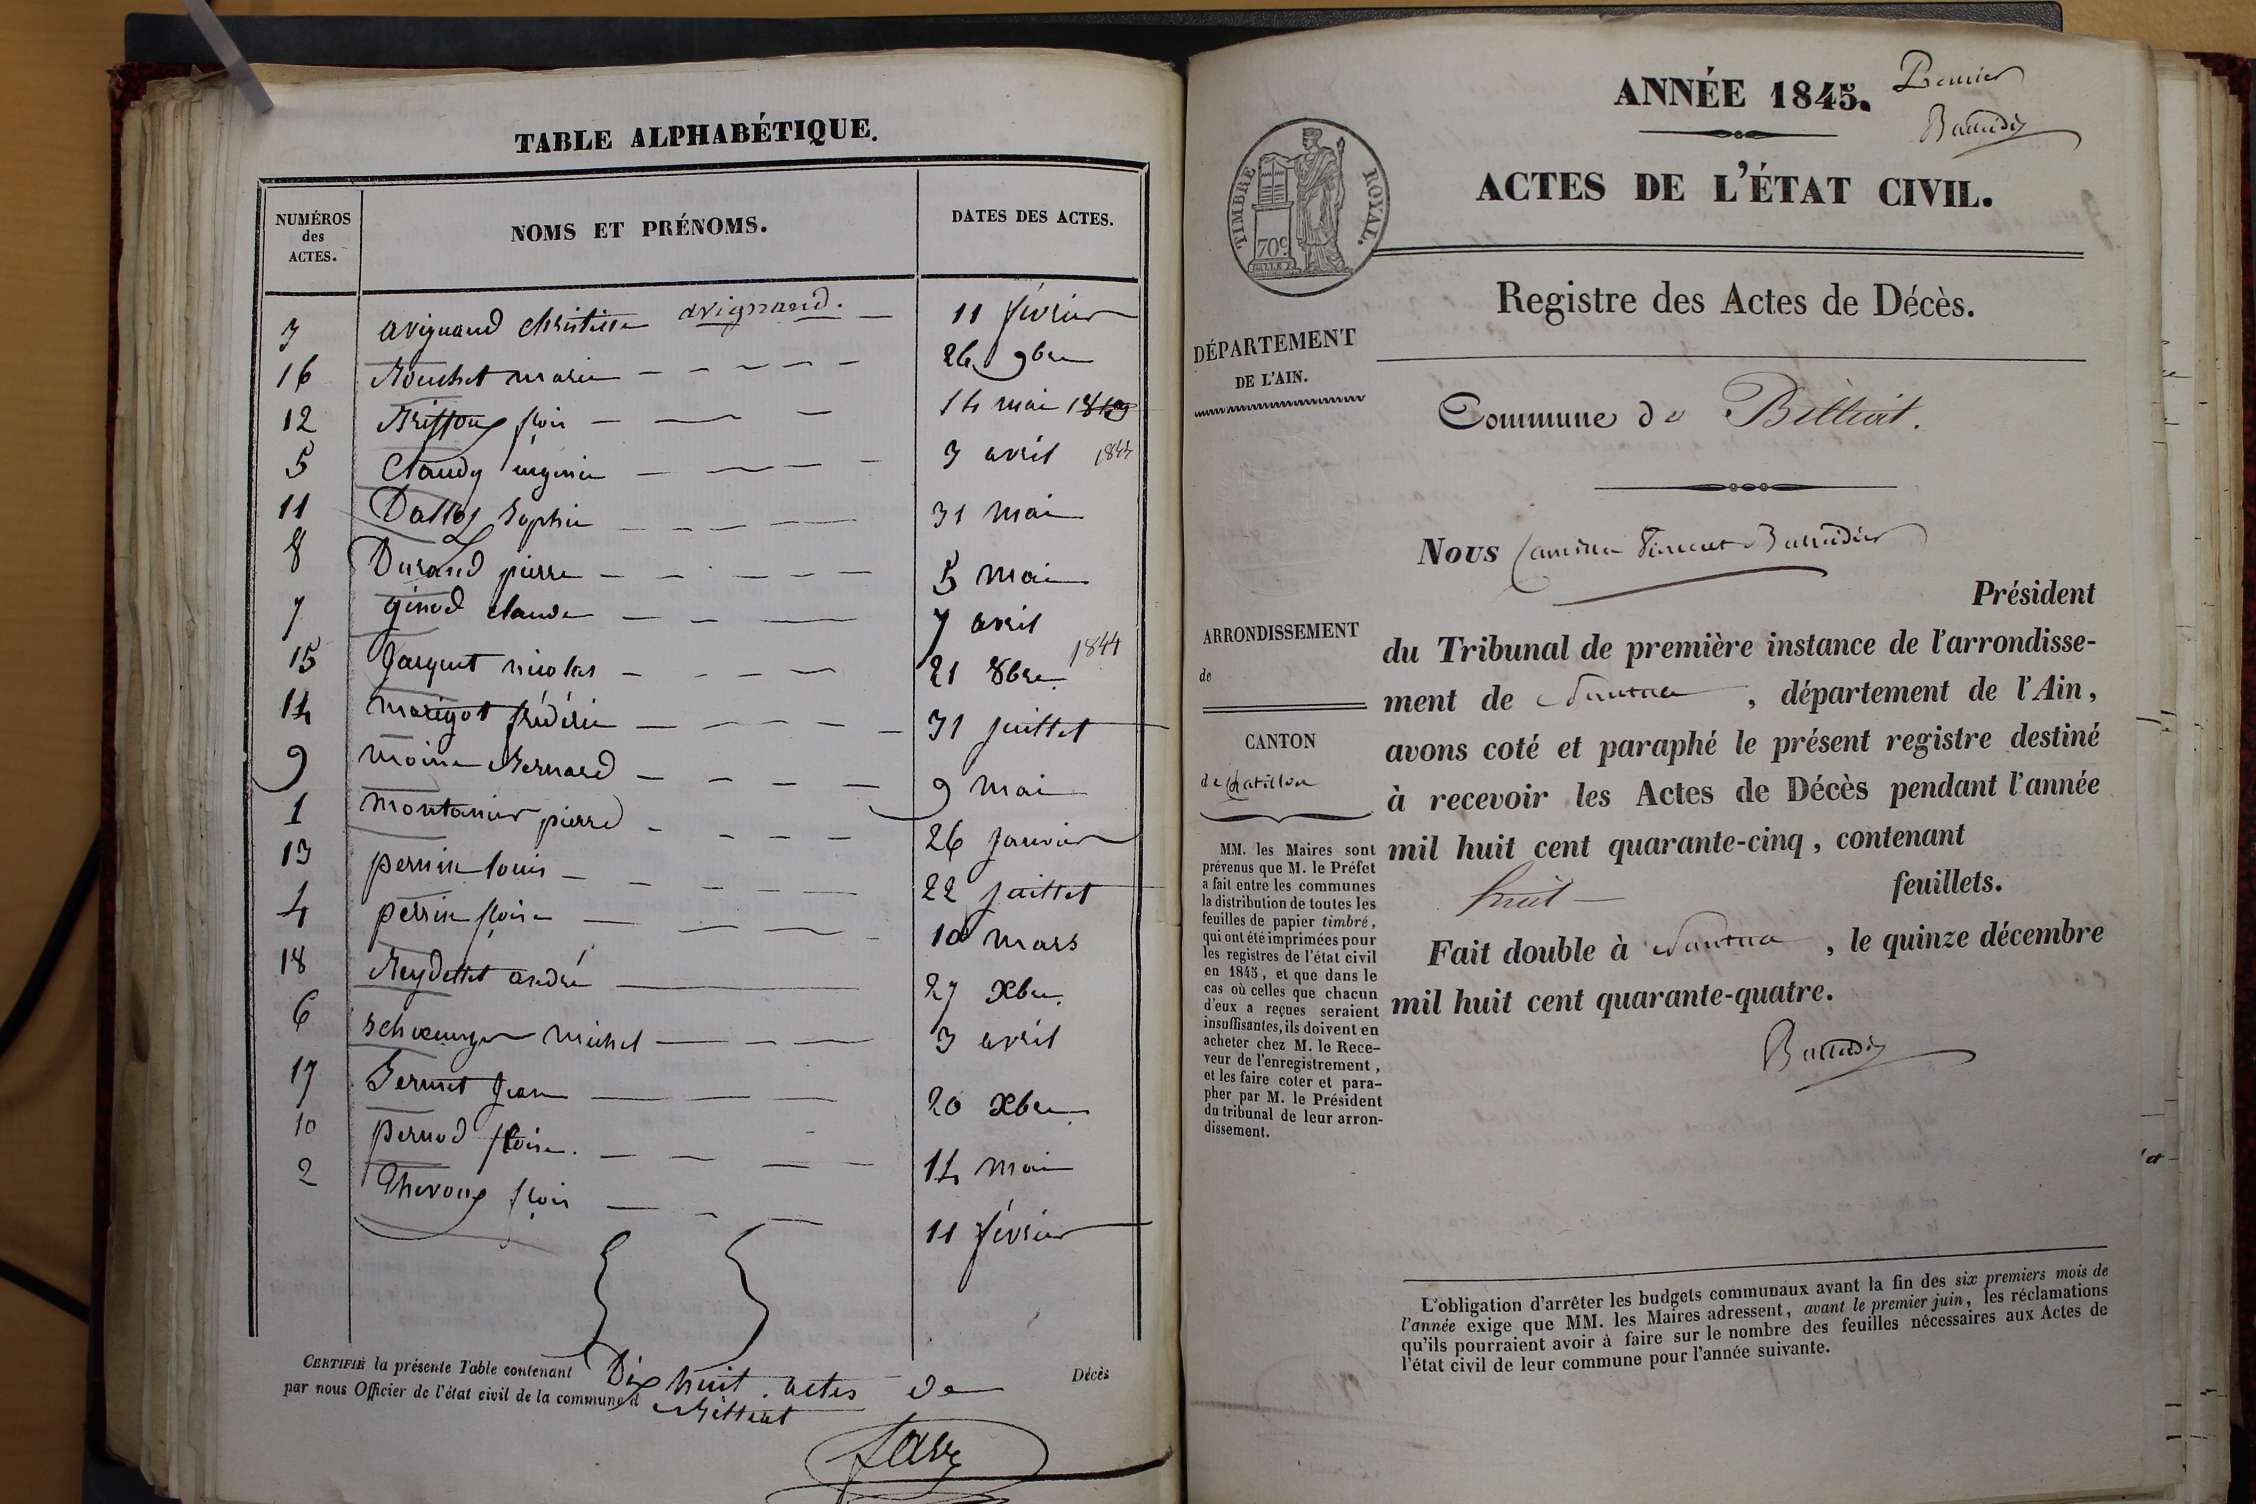 TABLE ALPHABÉTIQUE.
NUMÉROS
des
ACTES.
NOMS ET PRÉNOMS.
DATES DES ACTES.
3 avignand christine avignand. 11 février
16 Bouchet marie 26 9bre
12 14 mai
5 Claudy 3 avril 1844
11 sophie 31 mai
8 Durand pierre 5 mai
7 ginod claude 7 avril
15 Jacquet nicolas 21 8bre 1844
14 marigot frédéric 31 juillet
9 moine Bernard 9 mai
1 montanier pierre 26 janvier
13 perrin louis 22 juillet
4 perrin 10 mars
18 Reydellet andré 27 xbre.
6 michel 3 avril
17 Sermet Jean 20 xbre
10 pernod 14 mai
2 11 février
CERTIFIÉ la présente Table contenant Dix huit actes de Décès
par nous Officier de l'état civil de la commune d Billiat
ANNÉE 1845.
Premier
ACTES DE L'ÉTAT CIVIL.
TIMBRE ROYAL.
70c
Registre des Actes de Décès.
DÉPARTEMENT
DE L'AIN.
Commune de Billiat.
Nous
Président
ARRONDISSEMENT
de
du Tribunal de première instance de l'arrondisse-
ment de Nantua, département de l'Ain,
avons coté et paraphé le présent registre destiné
à recevoir les Actes de Décès pendant l'année
mil huit cent quarante-cinq, contenant
huit feuillets.
Fait double à Nantua, le quinze décembre
mil huit cent quarante-quatre.
CANTON
de Chatillon
MM. les Maires sont
prévenus que M. le Préfet
a fait entre les communes
la distribution de toutes les
feuilles de papier timbré,
qui ont été imprimées pour
les registres de l'état civil
en 1845, et que dans le
cas où celles que chacun
d'eux a reçues seraient
insuffisantes, ils doivent en
acheter chez M. le Rece-
veur de l'enregistrement,
et les faire coter et para-
pher par M. le Président
du tribunal de leur arron-
dissement.
L'obligation d'arrêter les budgets communaux avant la fin des six premiers mois de
l'année exige que MM. les Maires adressent, avant le premier juin, les réclamations
qu'ils pourraient avoir à faire sur le nombre des feuilles nécessaires aux Actes de
l'état civil de leur commune pour l'année suivante.